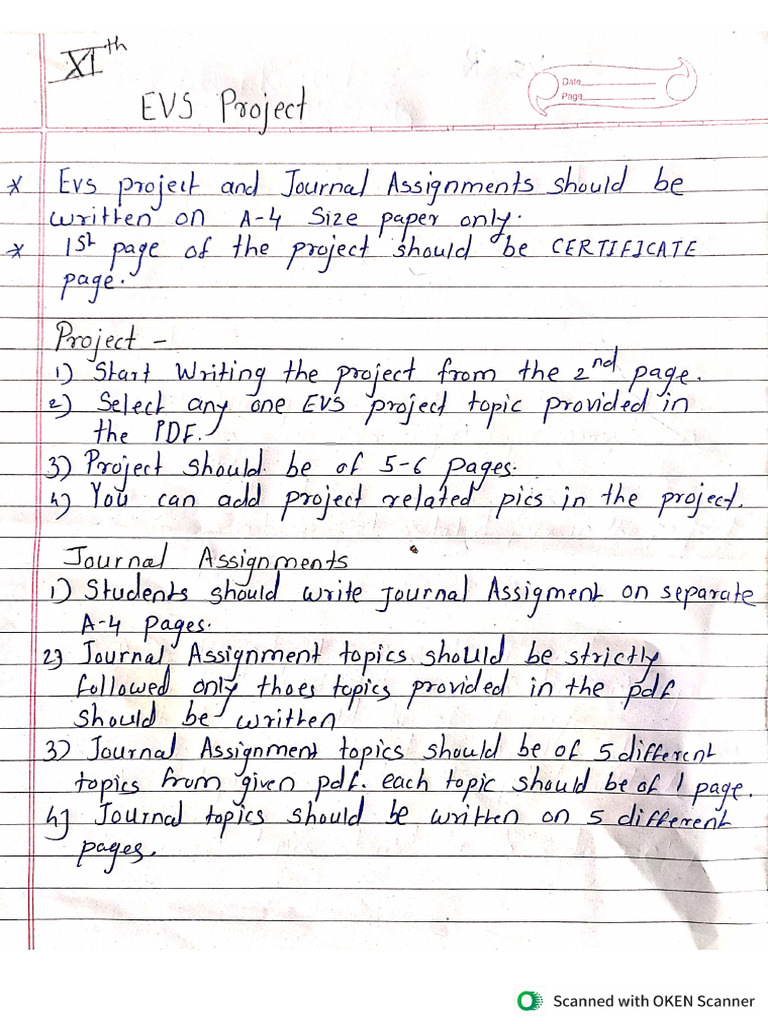 XIth
EVS Project
Date
Page
* Evs project and Journal Assignments should be
written on A-4 Size paper only.
* 1st page of the project should be CERTIFICATE
page.
Project -
1) Start Writing the project from the 2nd page.
2) Select any one EVS project topic provided in
the PDF.
3) Project should be of 5-6 pages.
4) You can add project related pics in the project.
Journal Assignments
1) Students should write Journal Assigment on separate
A-4 pages.
2) Journal Assignment topics should be strictly
followed only thoes topics provided in the pdf
should be written
3) Journal Assignment topics should be of 5 different
topics from given pdf. each topic should be of 1 page.
4) Journal topics should be written on 5 different
pages.
Scanned with OKEN Scanner